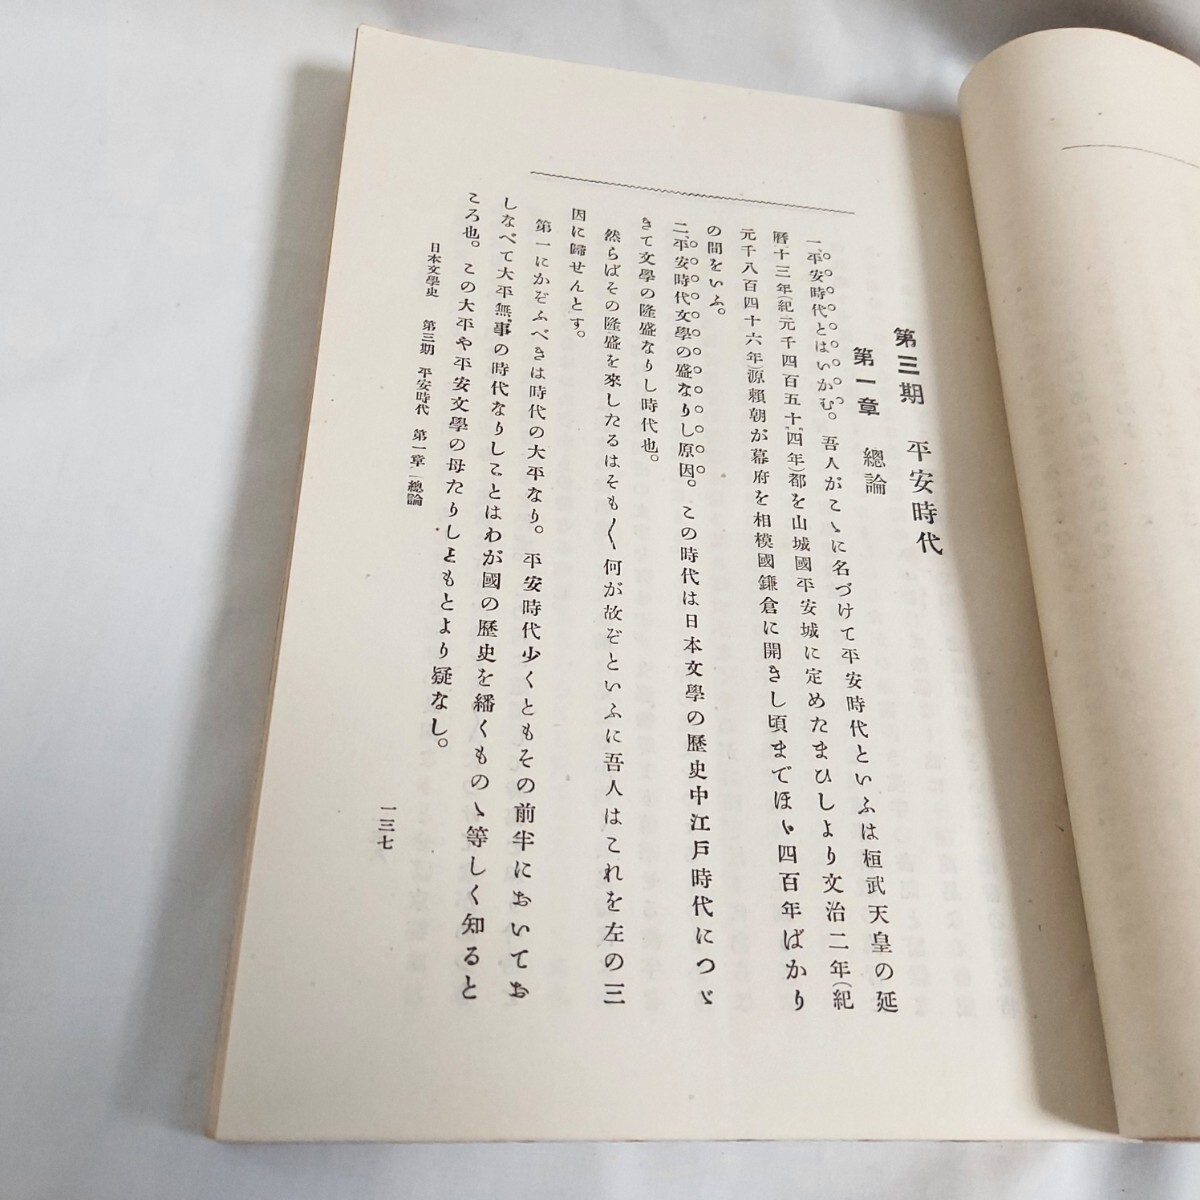 第三期　平安時代
第一章　總論
一、平安時代とはいかむ。吾人がこゝに名づけて平安時代といふは桓武天皇の延
曆十三年(紀元千四百五十四年)都を山城國平安城に定めたまひしより文治二年(紀
元千八百四十六年)源賴朝が幕府を相模國鎌倉に開きし頃までほゞ四百年ばかり
の間をいふ。
二、平安時代文學の盛なりし原因。この時代は日本文學の歷史中江戶時代につゞ
きて文學の隆盛なりし時代也。
然らばその隆盛を來したるはそも〱何が故ぞといふに吾人はこれを左の三
因に歸せんとす。
第一にかぞふべきは時代の大平なり。平安時代少くともその前半においてお
しなべて大平無事の時代なりしことはわが國の歷史を繙くものゝ等しく知ると
ころ也。この大平や平安文學の母たりしともとより疑なし。
日本文學史　第三期　平安時代　第一章　總論
一三七